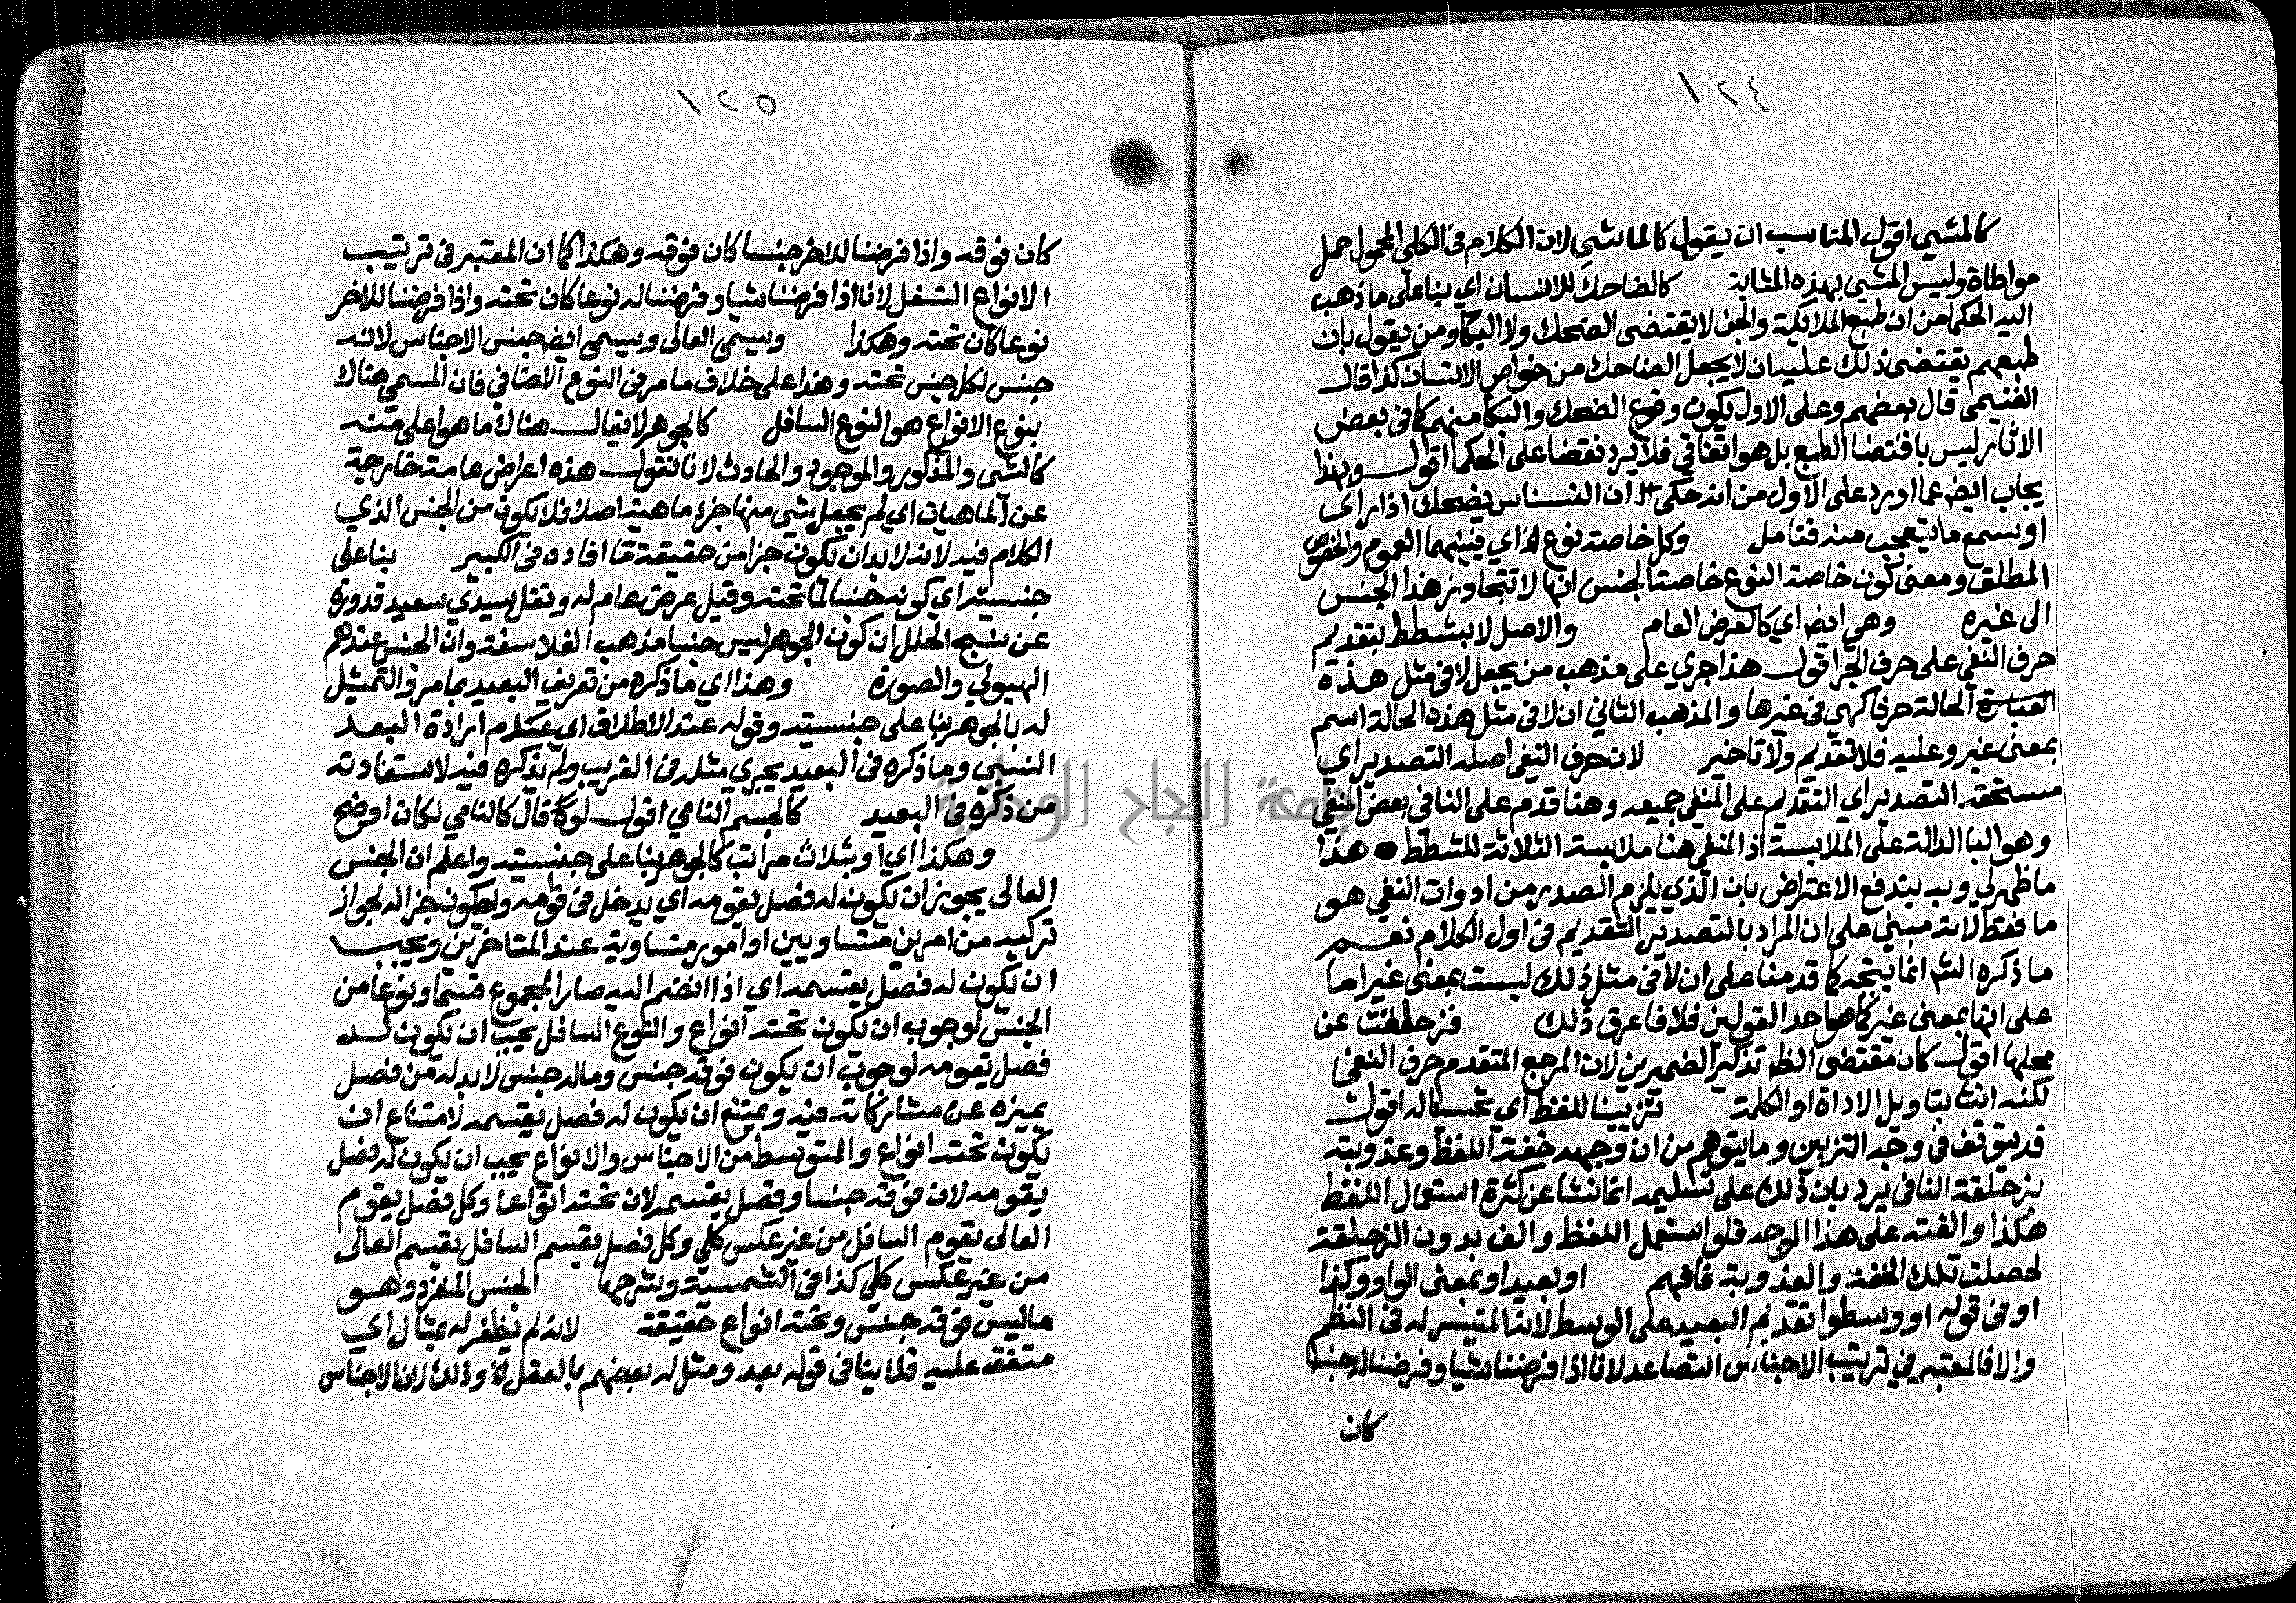 ١٢٤
كالمشي اقول المناسب ان يقول كالماشي لان الكلام في الكلي المحمول حمل
مواطاة وليس المشي بهذه المثابة كالضاحك للانسان اي بنا على ما ذهب
اليه الحكما من ان طبع الملائكة والجن لا يقتضي الضحك ولا البكا ومن يقول بان
طبعهم يقتضي ذلك عليه ان لا يجعل الضاحك من خواص الانسان كذا قال
الغنيمي قال بعضهم وعلى الاول يكون وقوع الضحك والبكا منهم كما في بعض
الاثار ليس باقتضا الطبع بل هو اتفاقي فلا يرد نقضا على الحكما اقول وبهذا
يجاب ايض عما اورد على الاول من انه حكي ان النسناس يضحك اذا راى
او سمع ما يتعجب منه فتامل وكل خاصة نوع الخ اي فبينهما العموم والخصوص
المطلق ومعنى كون خاصة النوع خاصة الجنس انها لا تتجاوز هذا الجنس
الى غيره وهي ايض اي كالعرض العام والاصل لا بشطط بتقديم
حرف النفي على حرف الجر اقول هذا جري على مذهب من يجعل لا في مثل هذه
الحالة حرفا كهي في غيرها والمذهب الثاني ان لا في مثل هذه الحالة اسم
بمعنى غير وعليه فلا تقديم ولا تاخير لان حرف النفي اصله التصدير اي
مستحقه التصدير اي التقديم على المنفي جميعه وهنا قدم على النافي بعض المنفي
وهو البا الدالة على الملابسة اذ المنفي هنا ملابسة الثلاثة للشطط هذا
ما ظهر لي وبه يندفع الاعتراض بان الذي يلزم الصدر من ادوات النفي هو
ما فقط لانه مبني على ان المراد بالتصدير التقديم في اول الكلام نعم
ما ذكره الش انما يتجه كما قدمنا على ان لا في مثل ذلك ليست بمعنى غير اما
على انها بمعنى غير كما هو احد القولين فلا فاعرف ذلك فزحلقت عن
محلها اقول كان مقتضى الظ تذكير الضميرين لان المرجع المتقدم حرف النفي
لكنه انث بتاويل الاداة او الكلمة تزيينا للفظ اي تحسينا له اقول
قد يتوقف في وجه التزيين وما يتوهم من ان وجهه خفة اللفظ وعذوبته
بزحلقة النافي يرد بان ذلك على تسليمه انما نشا عن كثرة استعمال اللفظ
هكذا والفته على هذا الوجه فلو استعمل اللفظ والف بدون الزحلقة
لحصلت تلك الخفة والعذوبة فافهم او بعيد او بمعنى الواو وكذا
او في قوله او وسطوا تقديم البعيد على الوسط لانه المتيسر له في النظم
والا فالمعتبر في ترتيب الاجناس التصاعد لانا اذا فرضنا شيا وفرضنا له جنسا
كان
١٢٥
كان فوقه واذا فرضنا للاخر جنسا كان فوقه وهكذا كما ان المعتبر في ترتيب
الانواع التسفل لانا اذا فرضنا شيا وفرضنا له نوعا كان تحته واذا فرضنا للاخر
نوعا كان تحته وهكذا ويسمى العالى ويسمى ايض جنس الاجناس لانه
جنس لكل جنس تحته وهذا على خلاف ما مر في النوع الاضافي فان المسمى هناك
بنوع الانواع هو النوع السافل كالجوهر لا يقال هناك ما هو اعلى منه
كالشي والمذكور والموجود والحادث لانا نقول هذه اعراض عامة خارجة
عن الماهيات اي لم يجعل شي منها جزء ماهية اصلا فلا يكون من الجنس الذي
الكلام فيه لانه لا بد ان يكون جزا من حقيقة ما افاده في الكبير بنا على
جنسيته اي كونه جنسا لما تحته وقيل عرض عام له ونقل سيدي سعيد قدورة
عن شيخ الحلل ان كون الجوهر ليس جنسا مذهب الفلاسفة وان الجنس عندهم
الهيولي والصورة وهذا اي ما ذكره من تعريف البعيد بما مر والتمثيل
له بالجوهر بنا على جنسيته وقوله عند الاطلاق اي عدم ارادة البعد
النسبي وما ذكره في البعيد يجري مثله في القريب ولم يذكره فيه لاستفادته
من ذكره في البعيد كالجسم النامي اقول لو قال كالنامي لكان اوضح
وهكذا اي او بثلاث مراتب كالجوهر بنا على جنسيته واعلم ان الجنس
العالى يجوز ان يكون له فصل يقومه اي يدخل في قوامه ويكون جزا له لجواز
تركبه من امرين متساويين او امور متساوية عند المتاخرين ويجب
ان يكون له فصل يقسمه اي اذا انضم اليه صار المجموع قسيما ونوعا من
الجنس لوجوب ان يكون تحته انواع والنوع السافل يجب ان يكون له
فصل يقومه لوجوب ان يكون فوقه جنس وماله جنس لا بد له من فصل
يميزه عن مشاركاته فيه ويمتنع ان يكون له فصل يقسمه لامتناع ان
يكون تحته انواع والمتوسط من الاجناس والانواع يجب ان يكون له فصل
يقومه لان فوقه جنسا وفصل يقسمه لان تحته انواعا وكل فصل يقوم
العالى يقوم السافل من غير عكس كلي وكل فصل يقسم السافل يقسم العالى
من غير عكس كلي كذا في الشمسية وشرحها الجنس المنفرد وهو
ما ليس فوقه جنس وتحته انواع حقيقة لانه لم يظفر له بمثال اي
متفق عليه فلا ينافي قوله بعد ومثل له بعضهم بالعقل الخ وذلك لان الاجناس
جامعة النجاح الوطنية